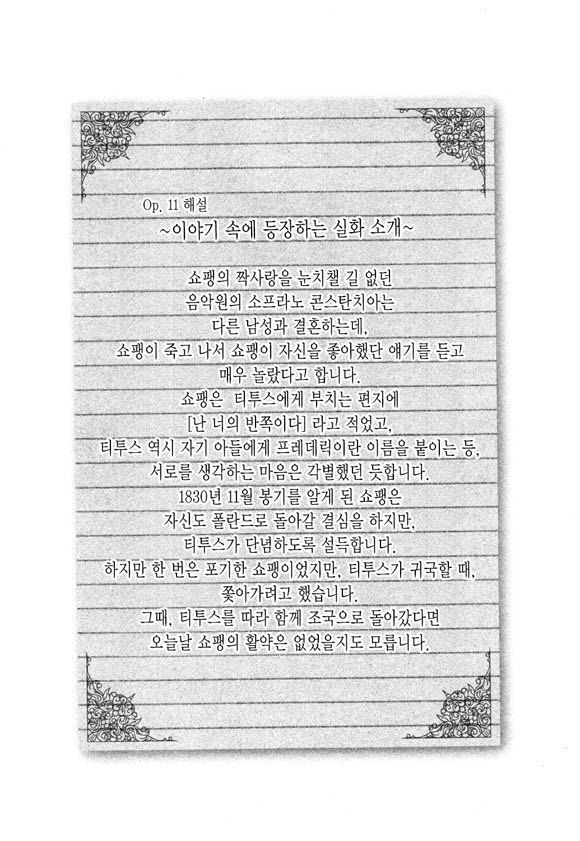 Op. 11 해설
~이야기 속에 등장하는 실화 소개~
쇼팽의 짝사랑을 눈치챌 길 없던
음악원의 소프라노 콘스탄치아는
다른 남성과 결혼하는데,
쇼팽이 죽고 나서 쇼팽이 자신을 좋아했단 얘기를 듣고
매우 놀랐다고 합니다.
쇼팽은 티투스에게 부치는 편지에
[난 너의 반쪽이다] 라고 적었고,
티투스 역시 자기 아들에게 프레데릭이란 이름을 붙이는 등,
서로를 생각하는 마음은 각별했던 듯합니다.
1830년 11월 봉기를 알게 된 쇼팽은
자신도 폴란드로 돌아갈 결심을 하지만,
티투스가 단념하도록 설득합니다.
하지만 한 번은 포기한 쇼팽이었지만, 티투스가 귀국할 때,
쫓아가려고 했습니다.
그때, 티투스를 따라 함께 조국으로 돌아갔다면
오늘날 쇼팽의 활약은 없었을지도 모릅니다.